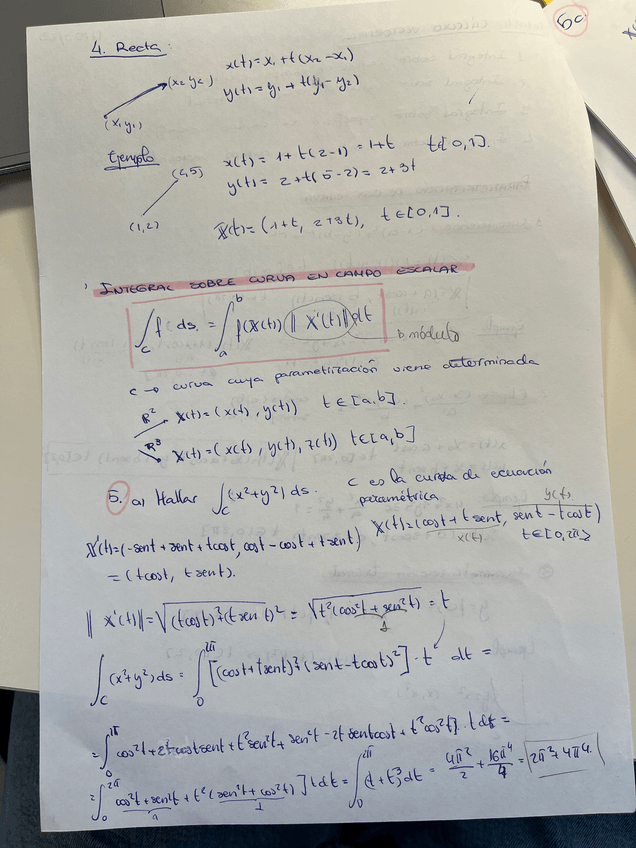 5c
4. Recta:
(x₁ y₁) (x₂ y₂)
x(t) = x₁ + t(x₂ - x₁)
y(t) = y₁ + t(y₁ - y₂)
Ejemplo
(1,2) (2,5)
x(t) = 1 + t(2-1) = 1+t t∈[0,1].
y(t) = 2 + t(5-2) = 2+3t
X(t) = (1+t, 2+3t), t∈[0,1].
INTEGRAL SOBRE CURVA EN CAMPO ESCALAR
∫_C f ds. = ∫_a^b f(X(t)) ||X'(t)|| dt
módulo
c → curva cuya parametrización viene determinada
R² X(t) = (x(t), y(t)) t∈[a,b].
R³ X(t) = (x(t), y(t), z(t)) t∈[a,b]
5. a) Hallar ∫_C (x²+y²) ds. C es la curva de ecuación
paramétrica
X(t) = (cost + t sent, sent - t cost)
x(t) y(t) t∈[0,2π]
X'(t) = (-sent + sent + tcost, cost - cost + tsent)
= (tcost, tsent).
||X'(t)|| = √((tcost)² + (tsent)²) = √(t²(cos²t + sen²t)) = t
1
∫_C (x²+y²) ds = ∫_0^2π [(cost + tsent)² + (sent - tcost)²] · t dt =
= ∫_0^2π cos²t + 2t cost sent + t² sen²t + sen²t - 2t sent cost + t² cos²t] · t dt =
= ∫_0^2π cos²t + sen²t + t²(sen²t + cos²t)] t dt = ∫_0^2π (t + t³) dt = 4π²/2 + 16π⁴/4 = 2π² + 4π⁴.
1 1